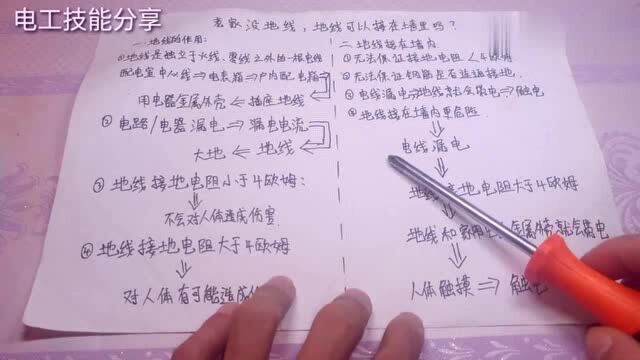 电工技能分享
老家没地线，地线可以接在墙里吗？
一.地线的作用：
①地线是独立于火线、零线之外的一根电线
配电室中心线⇒电表箱⇒户内配电箱
用电器金属外壳⇐插座地线
②电路/电器漏电⇒漏电电流
大地⇐地线
③地线接地电阻小于4欧姆：
不会对人体造成伤害
④地线接地电阻大于4欧姆
对人体有可能造成
二.地线接在墙内
①无法保证接地电阻<4欧姆
②无法保证钢筋是否连通接地.
③电线漏电⇒地线就会带电⇒触电
④地线接在墙内更危险
电线漏电
地线 地电阻大于4欧姆
地线和家用 金属外壳就会带电
人体触摸⇒触